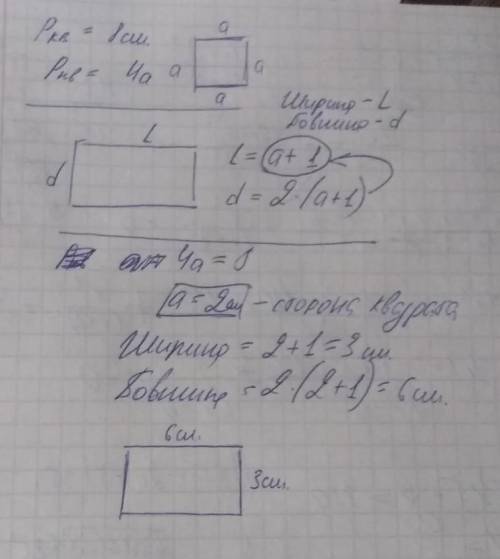 Ркв = 8см.
a
Ркв = 4a
a
a
a
Ширина - L
Товшина - d
L
d
l = a + 1
d = 2·(a+1)
4a = 8
a = 2см - сторона квадрата
Ширина = 2+1 = 3 см.
Товшина = 2·(2+1) = 6см.
6см.
3см.